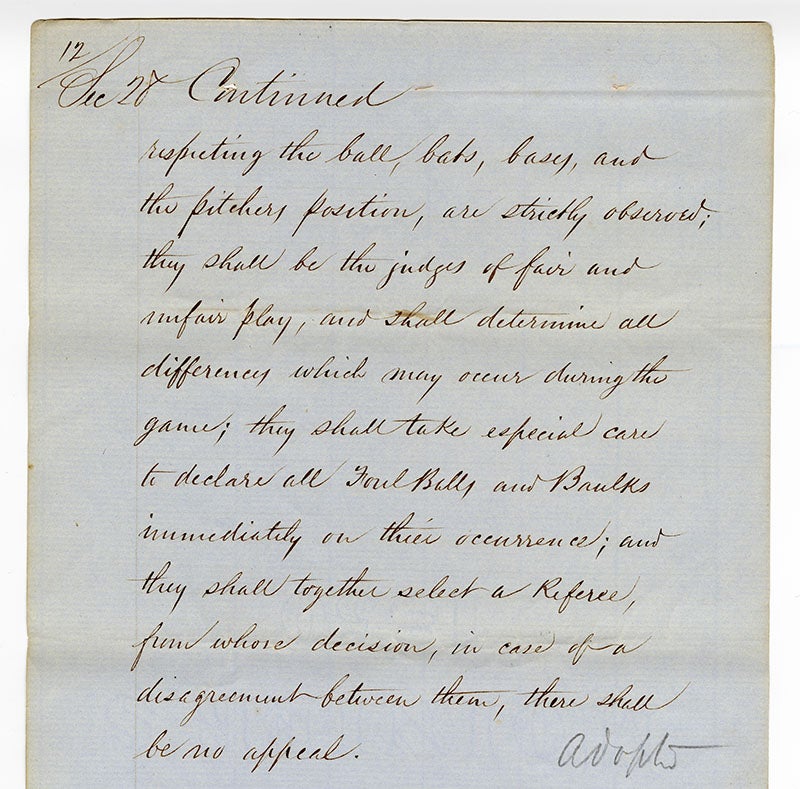 12
Sec 28 Continued
respecting the ball, bats, bases, and
the pitchers position, are strictly observed;
they shall be the judges of fair and
unfair play, and shall determine all
differences which may occur during the
game; they shall take especial care
to declare all Foul Balls and Baulks
immediately on thier occurrence; and
they shall together select a Referee,
from whose decision, in case of a
disagreement between them, there shall
be no appeal.
Adopted